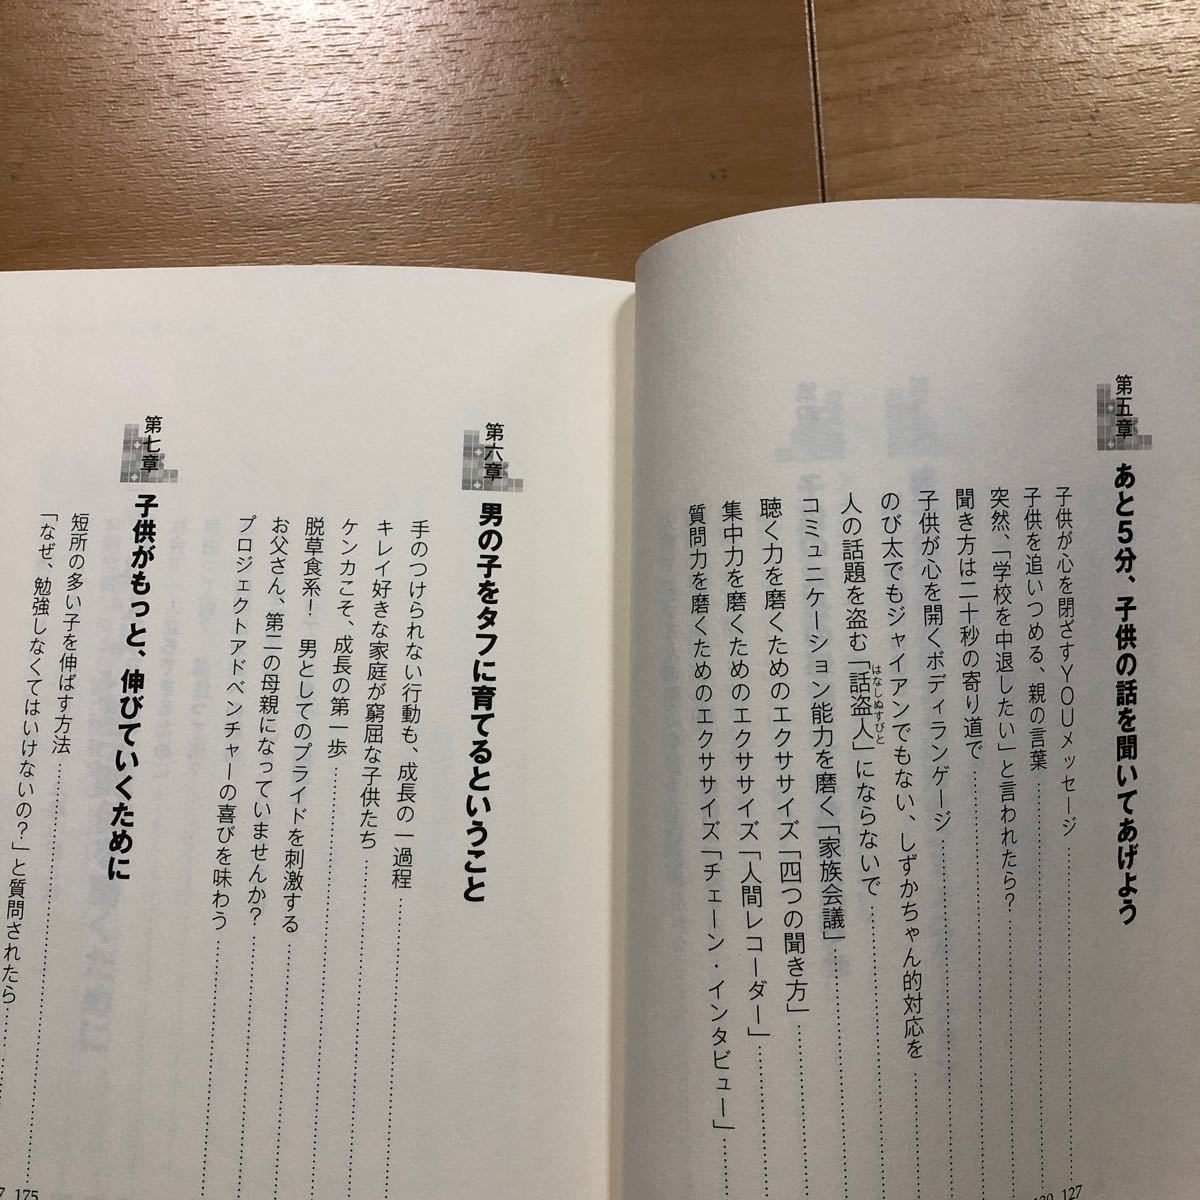 第五章
あと5分、子供の話を聞いてあげよう
子供が心を閉ざすYOUメッセージ
127
子供を追いつめる、親の言葉
突然、「学校を中退したい」と言われたら?
聞き方は二十秒の寄り道で
子供が心を開くボディランゲージ
のび太でもジャイアンでもない、しずかちゃん的対応を
人の話題を盗む「話盗人」にならないで
はなしぬすびと
コミュニケーション能力を磨く「家族会議」
聴く力を磨くためのエクササイズ「四つの聞き方」
集中力を磨くためのエクササイズ「人間レコーダー」
質問力を磨くためのエクササイズ「チェーン・インタビュー」
第六章
男の子をタフに育てるということ
手のつけられない行動も、成長の一過程
キレイ好きな家庭が窮屈な子供たち
ケンカこそ、成長の第一歩
脱草食系! 男としてのプライドを刺激する
お父さん、第二の母親になっていませんか?
プロジェクトアドベンチャーの喜びを味わう
第七章
子供がもっと、伸びていくために
短所の多い子を伸ばす方法
175
「なぜ、勉強しなくてはいけないの?」と質問されたら